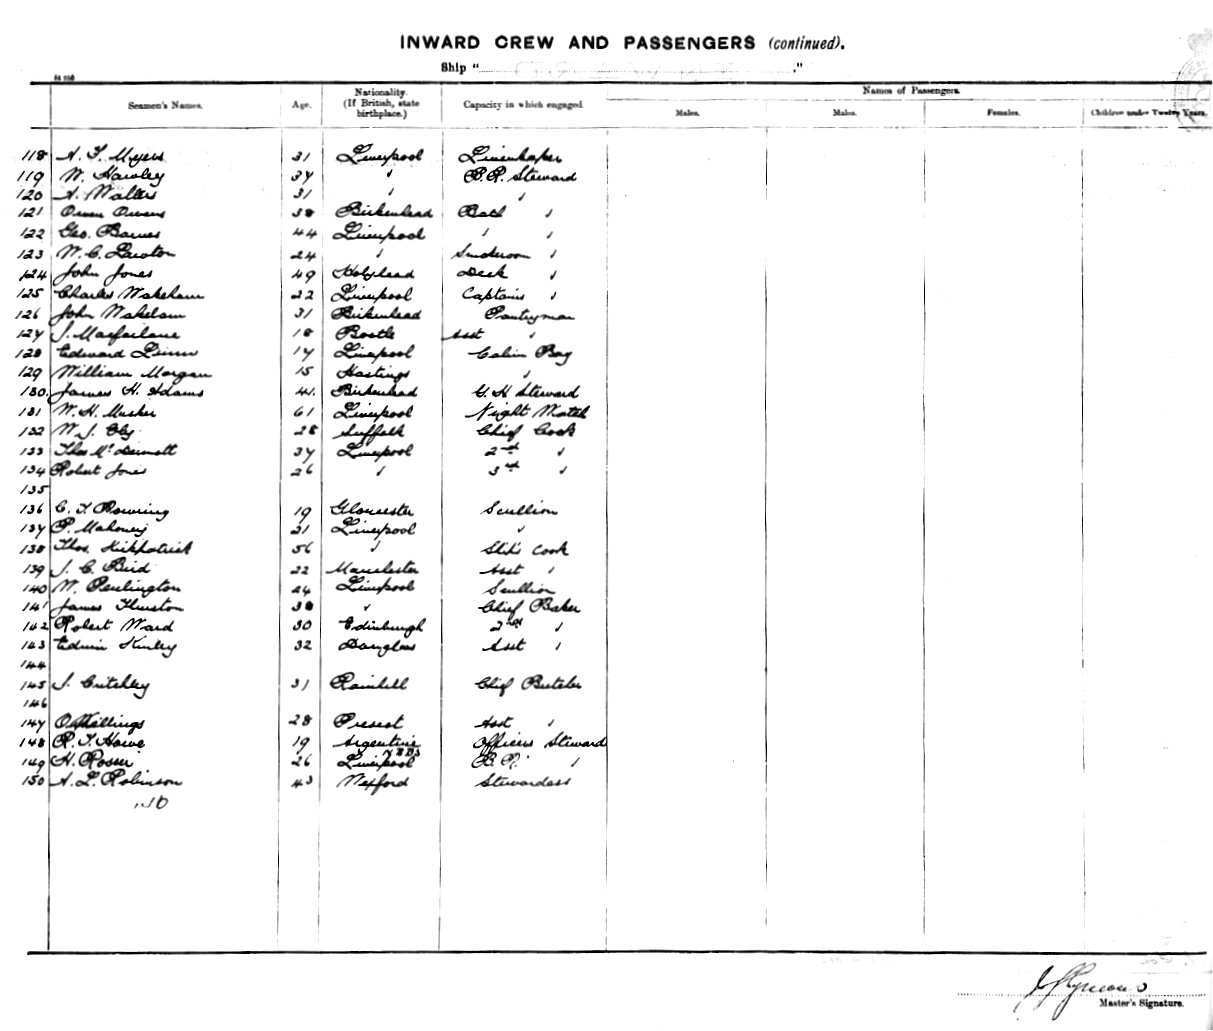 INWARD CREW AND PASSENGERS (continued).
Ship " "
Seamen's Names. Age. Nationality. (If British, state birthplace.) Capacity in which engaged. Names of Passengers.
Males. Males. Females. Children under Twelve Years.
118 A. T. Myers 31 Liverpool Linenkeeper
119 W. Hawley 34 " B.R. Steward
120 A. Walters 31 " "
121 Owen Owens 38 Birkenhead Bath "
122 Geo. Barnes 44 Liverpool " "
123 W. C. Lawton 24 " Smokeroom "
124 John Jones 49 Holyhead Deck "
125 Charles Wakeham 22 Liverpool Captains "
126 John Wakelam 31 Birkenhead Pantryman
127 J. Macfarlane 18 Bootle Asst "
128 Edward Dunn 17 Liverpool Cabin Boy
129 William Morgan 15 Hastings "
130 James H. Adams 41 Birkenhead G. H Steward
131 W. H. Musker 61 Liverpool Night Watch
132 W. J. 28 Suffolk Chief Cook
133 Thos McDermott 37 Liverpool 2nd "
134 Robert Jones 26 " 3rd "
135
136 C. T. Bowring 19 Gloucester Scullion
137 P. Mahoney 21 Liverpool "
138 Thos. Kirkpatrick 56 " Cook
139 J. C. Bird 22 Manchester Asst "
140 W. Penlington 24 Liverpool Scullion
141 James Thurston 38 " Chief Baker
142 Robert Ward 30 Edinburgh 2nd "
143 Edwin Kinley 32 Douglas Asst "
144
145 J. Critchley 31 Rainhill Chief Butcher
146
147 O. Billings 28 Prescot Asst "
148 R. T. Howe 19 Argentine Officers Steward
149 H. Rosser 26 Liverpool B.R. "
150 A. L. Robinson 43 Wexford Stewardess
150
Master's Signature.